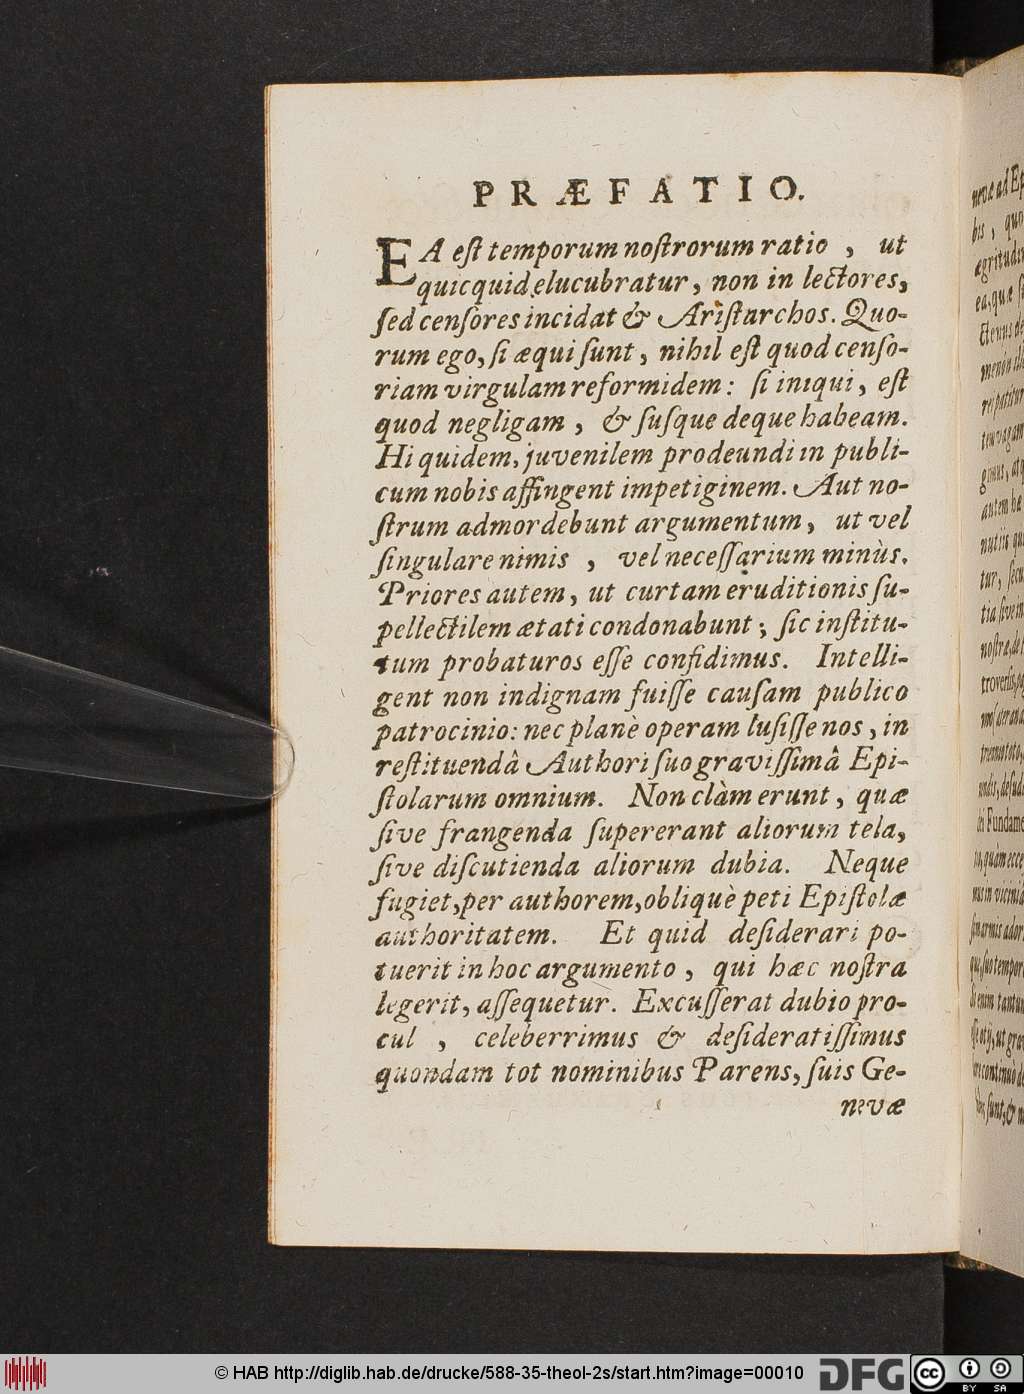 PRÆFATIO.
EA eſt temporum noſtrorum ratio, ut
quicquid elucubratur, non in lectores,
ſed cenſores incidat & Ariſtarchos. Quo-
rum ego, ſi æqui ſunt, nihil eſt quod cenſo-
riam virgulam reformidem: ſi iniqui, eſt
quod negligam, & ſuſque deque habeam.
Hi quidem, juvenilem prodeundi in publi-
cum nobis affingent impetiginem. Aut no-
ſtrum admordebunt argumentum, ut vel
ſingulare nimis, vel neceſſarium minùs.
Priores autem, ut curtam eruditionis ſu-
pellectilem ætati condonabunt; ſic inſtitu-
tum probaturos eſſe confidimus. Intelli-
gent non indignam fuiſſe cauſam publico
patrocinio: nec planè operam luſiſſe nos, in
reſtituendâ Authori ſuo graviſſimâ Epi-
ſtolarum omnium. Non clàm erunt, quæ
ſive frangenda ſupererant aliorum tela,
ſive diſcutienda aliorum dubia. Neque
fugiet, per authorem, obliquè peti Epiſtolæ
authoritatem. Et quid deſiderari po-
tuerit in hoc argumento, qui hæc noſtra
legerit, aſſequetur. Excuſſerat dubio pro-
cul, celeberrimus & deſideratiſſimus
quondam tot nominibus Parens, ſuis Ge-
nevæ
© HAB http://diglib.hab.de/drucke/588-35-theol-2s/start.htm?image=00010
DFG
cc
BY SA